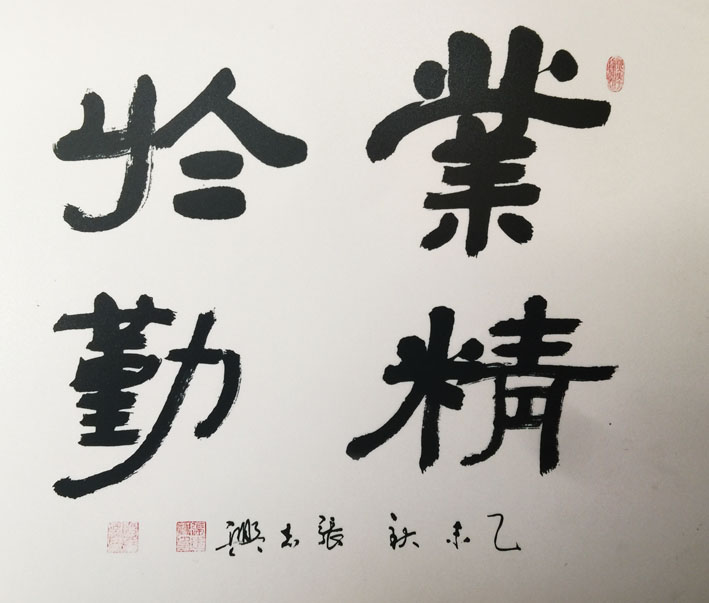 業精
於勤
乙未秋 張志興